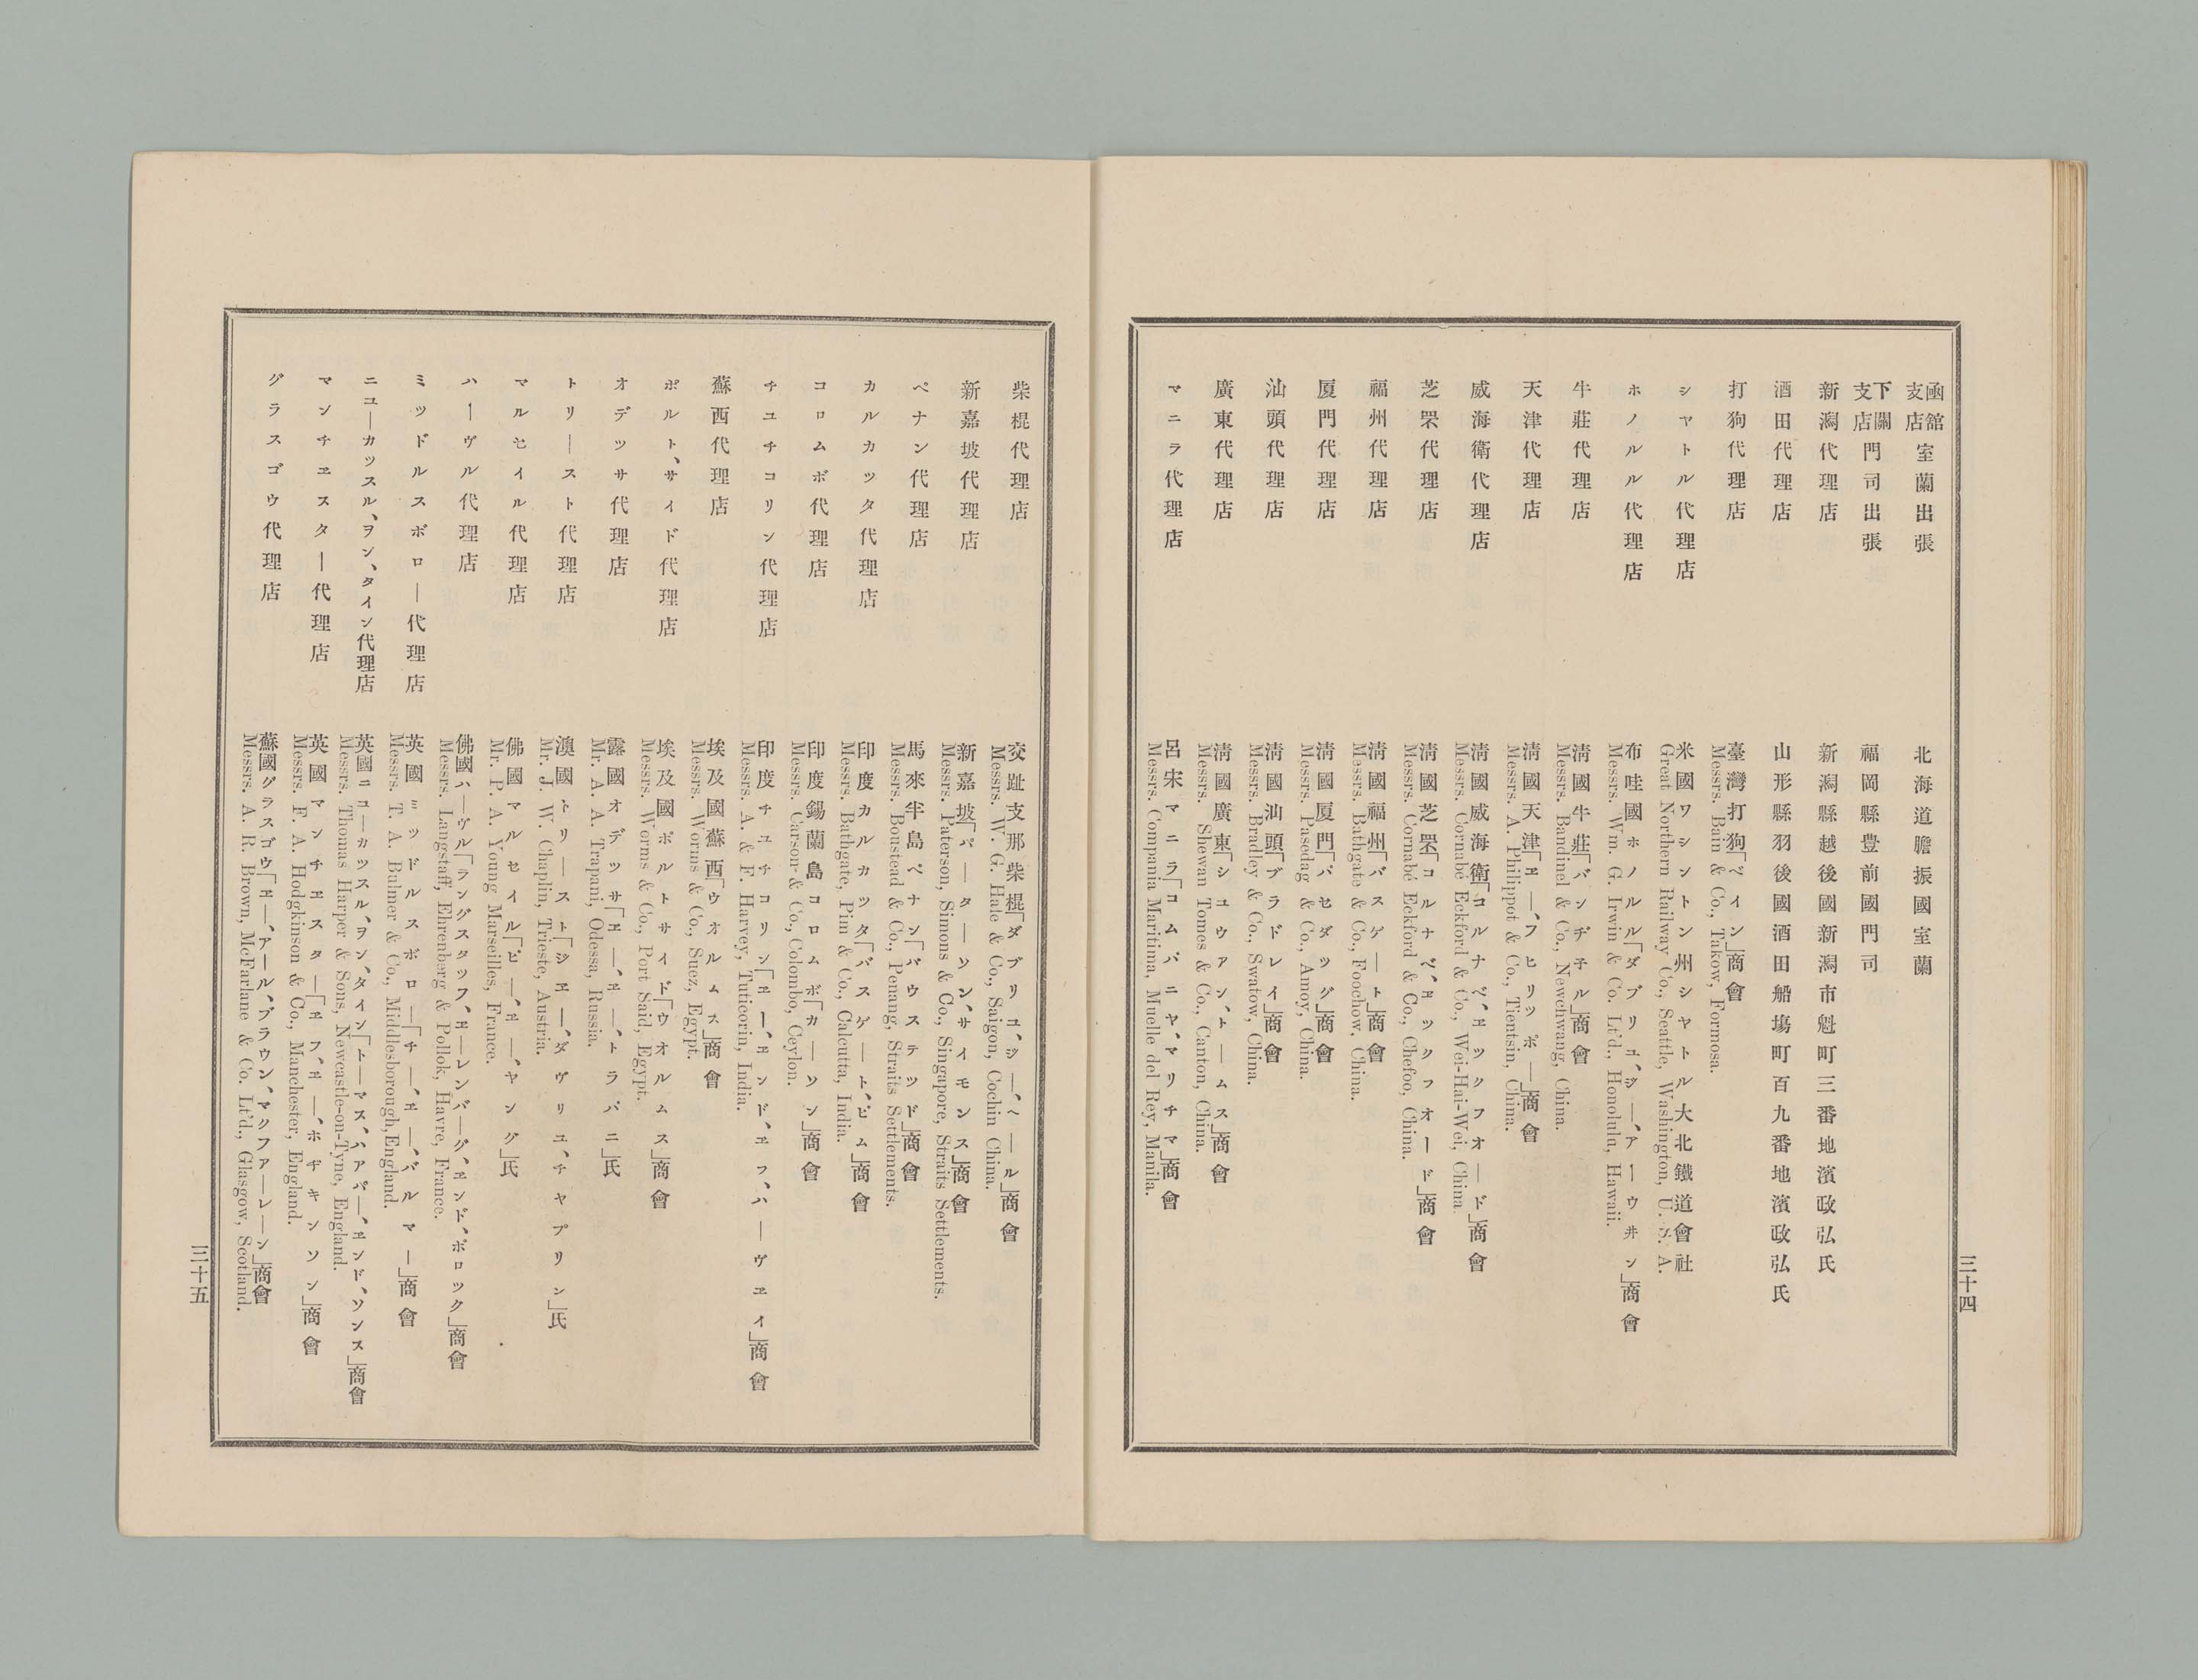 函館支店室蘭出張
北海道膽振國室蘭
下關支店門司出張
福岡縣豊前國門司
新潟代理店
新潟縣越後國新潟市魁町三番地濱政弘氏
酒田代理店
山形縣羽後國酒田船塲町百九番地濱政弘氏
打狗代理店
臺灣打狗「ベイン」商會
Messrs. Bain & Co., Takow, Formosa.
シヤトル代理店
米國ワシントン州シヤトル大北鐵道會社
Great Northern Railway Co., Seattle, Washington, U. S. A.
ホノルル代理店
布哇國ホノルル「ダブリユ、ジー、アーウヰン」商會
Messrs. Wm. G. Irwin & Co. Lt'd., Honolulu, Hawaii.
牛莊代理店
淸國牛莊「バンヂネル」商會
Messrs. Bandinel & Co., Newchwang, China.
天津代理店
淸國天津「ヱー、フヒリツポー」商會
Messrs. A. Philippot & Co., Tientsin, China.
威海衛代理店
淸國威海衛「コルナベ、ヱツクフオード」商會
Messrs. Cornabé Eckford & Co., Wei-Hai-Wei, China.
芝罘代理店
淸國芝罘「コルナベ、ヱツクフオード」商會
Messrs. Cornabé Eckford & Co., Chefoo, China.
福州代理店
淸國福州「バスゲート」商會
Messrs. Bathgate & Co., Foochow, China.
厦門代理店
淸國厦門「パセダツグ」商會
Messrs. Pasedag & Co., Amoy, China.
汕頭代理店
淸國汕頭「ブラドレイ」商會
Messrs. Bradley & Co., Swatow, China.
廣東代理店
淸國廣東「シユウアン、トームス」商會
Messrs. Shewan Tomes & Co., Canton, China.
マニラ代理店
呂宋マニラ「コムパニヤ、マリチマ」商會
Messrs. Compania Maritima, Muelle del Rey, Manila.
三十四
柴棍代理店
交趾支那柴棍「ダブリユ、ジー、ヘール」商會
Messrs. W. G. Hale & Co., Saigon, Cochin China.
新嘉坡代理店
新嘉坡「パーターソン、サイモンス」商會
Messrs. Paterson, Simons & Co., Singapore, Straits Settlements.
ペナン代理店
馬來半島ペナン「バウステツド」商會
Messrs. Boustead & Co., Penang, Straits Settlements.
カルカツタ代理店
印度カルカツタ「バスゲート、ピム」商會
Messrs. Bathgate, Pim & Co., Calcutta, India.
コロムボ代理店
印度錫蘭島コロムボ「カーソン」商會
Messrs. Carson & Co., Colombo, Ceylon.
チユチコリン代理店
印度チユチコリン「ヱー、ヱンド、ヱフ、ハーヴヱイ」商會
Messrs. A. & F. Harvey, Tuticorin, India.
蘇西代理店
埃及國蘇西「ウオルムス」商會
Messrs. Worms & Co., Suez, Egypt.
ポルト、サイド代理店
埃及國ポルトサイド「ウオルムス」商會
Messrs. Worms & Co., Port Said, Egypt.
オデツサ代理店
露國オデツサ「ヱー、ヱー、トラパニ」氏
Mr. A. A. Trapani, Odessa, Russia.
トリースト代理店
澳國トリースト「ジヱー、ダヴリユ、チヤプリン」氏
Mr. J. W. Chaplin, Trieste, Austria.
マルセイル代理店
佛國マルセイル「ピー、ヱー、ヤング」氏
Mr. P. A. Young Marseilles, France.
ハーヴル代理店
佛國ハーヴル「ラングスタツフ、ヱーレンバーグ、ヱンド、ポロツク」商會
Messrs. Langstaff, Ehrenberg & Pollok, Havre, France.
ミツドルスボロー代理店
英國ミツドルスボロー「チー、ヱー、バルマー」商會
Messrs. T. A. Bulmer & Co., Middlesborough, England.
ニユーカツスル、ヲン、タイン代理店
英國ニユーカツスル、ヲン、タイン「トーマス、ハアパー、ヱンド、ソンス」商會
Messrs. Thomas Harper & Sons, Newcastle-on-Tyne, England.
マンチヱスター代理店
英國マンチヱスター「ヱフ、ヱー、ホヂキンソン」商會
Messrs. F. A. Hodgkinson & Co., Manchester, England.
グラスゴウ代理店
蘇國グラスゴウ「ヱー、アール、ブラウン、マクファーレーン」商會
Messrs. A. R. Brown, McFarlane & Co. Lt'd., Glasgow, Scotland.
三十五